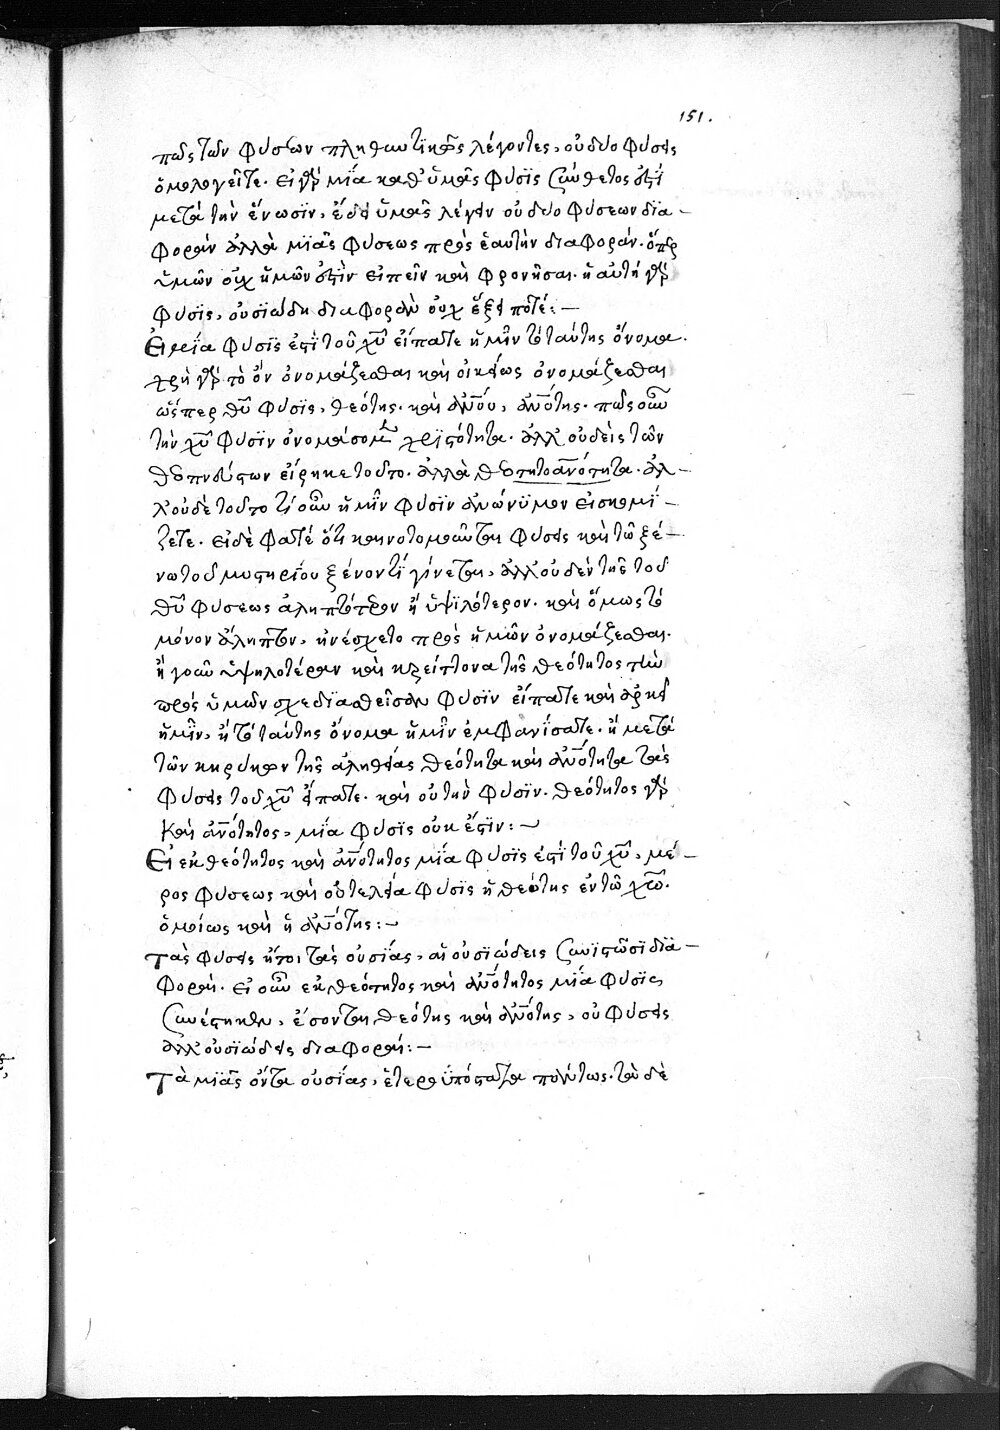 151.
πῶς τῶν φύσεων πληθυντικῶς λέγοντες, οὐ δύο φύσεις
ὁμολογεῖτε. εἰ γὰρ μία καθ' ὑμᾶς φύσις σύνθετος ἐστὶ
μετὰ τὴν ἕνωσιν, ἔδει ὑμᾶς λέγειν οὐ δύο φύσεων δια-
φορὰν ἀλλὰ μιᾶς φύσεως πρὸς ἑαυτὴν διαφοράν. ὅπερ
ὑμῶν οὐχ ἡμῶν ἐστὶν εἰπεῖν καὶ φρονῆσαι. ἡ αὐτὴ γὰρ
φύσις, οὐσιώδη διαφορὰν οὐχ ἕξει ποτέ:—
Εἰ μία φύσις ἐπὶ τοῦ χυ εἴπατε ἡμῖν τὸ ταύτης ὄνομα.
χρὴ γὰρ τὸ ὂν ὀνομάζεσθαι καὶ οἰκείως ὀνομάζεσθαι
ὥσπερ θυ φύσις, θεότης. καὶ ἀνου, ἀνότης. πῶς οὖν
τὴν χυ φύσιν ὀνομάσομεν χριστότητα. ἀλλ' οὐδεὶς τῶν
θεοπνεύστων εἴρηκε τοῦτο. ἀλλὰ θεοτητοανότητα. ἀλ-
λ' οὐδὲ τοῦτο τί οὖν ἡμῖν φύσιν ἀνώνυμον εἰσκομί-
ζετε. εἰ δὲ φατέ ὅτι καινοτομοῦνται φύσεις καὶ τῷ ξέ-
νω τοῦ μυστηρίου ξένον τί γίνεται, ἀλλ' οὐδὲν τῆς τοῦ
θυ φύσεως ἀληπτότερον ἢ ὑψιλότερον. καὶ ὅμως τὸ
μόνον ἄληπτον, ἠνέσχετο πρὸς ἡμῶν ὀνομάζεσθαι.
ἢ γοῦν ὑψηλοτέραν καὶ κρείττονα τῆς θεότητος τὴν
πρὸς ὑμῶν σχεδιασθεῖσαν φύσιν εἴπατε καὶ ἀρκεῖ
ἡμῖν, ἢ τὸ ταύτης ὄνομα ἡμῖν ἐμφανίσατε. ἢ μετὰ
τῶν κηρύκων τῆς ἀληθείας θεότητα καὶ ἀνότητα τὰς
φύσεις τοῦ χυ εἴπατε. καὶ οὐ τὴν φύσιν. θεότητος γὰρ
καὶ ἀνότητος, μία φύσις οὐκ ἔστιν:—
Εἰ ἐκ θεότητος καὶ ἀνότητος μία φύσις ἐπὶ τοῦ χυ, μέ-
ρος φύσεως καὶ οὐ τελεία φύσις ἡ θεότης ἐν τῷ χω.
ὁμοίως καὶ ἡ ἀνότης:—
Τὰς φύσεις ἤτοι τὰς οὐσίας, αἱ οὐσιώδεις συνιστῶσι δια-
φοραί. εἰ οὖν ἐκ θεότητος καὶ ἀνότητος μία φύσις
συνέστηκεν, ἔσονται θεότης καὶ ἀνότης, οὐ φύσεις
ἀλλ' οὐσιώδεις διαφοραί:—
Τὰ μιᾶς ὄντα οὐσίας, ἑτεροϋπόστατα πάντως. τὰ δὲ